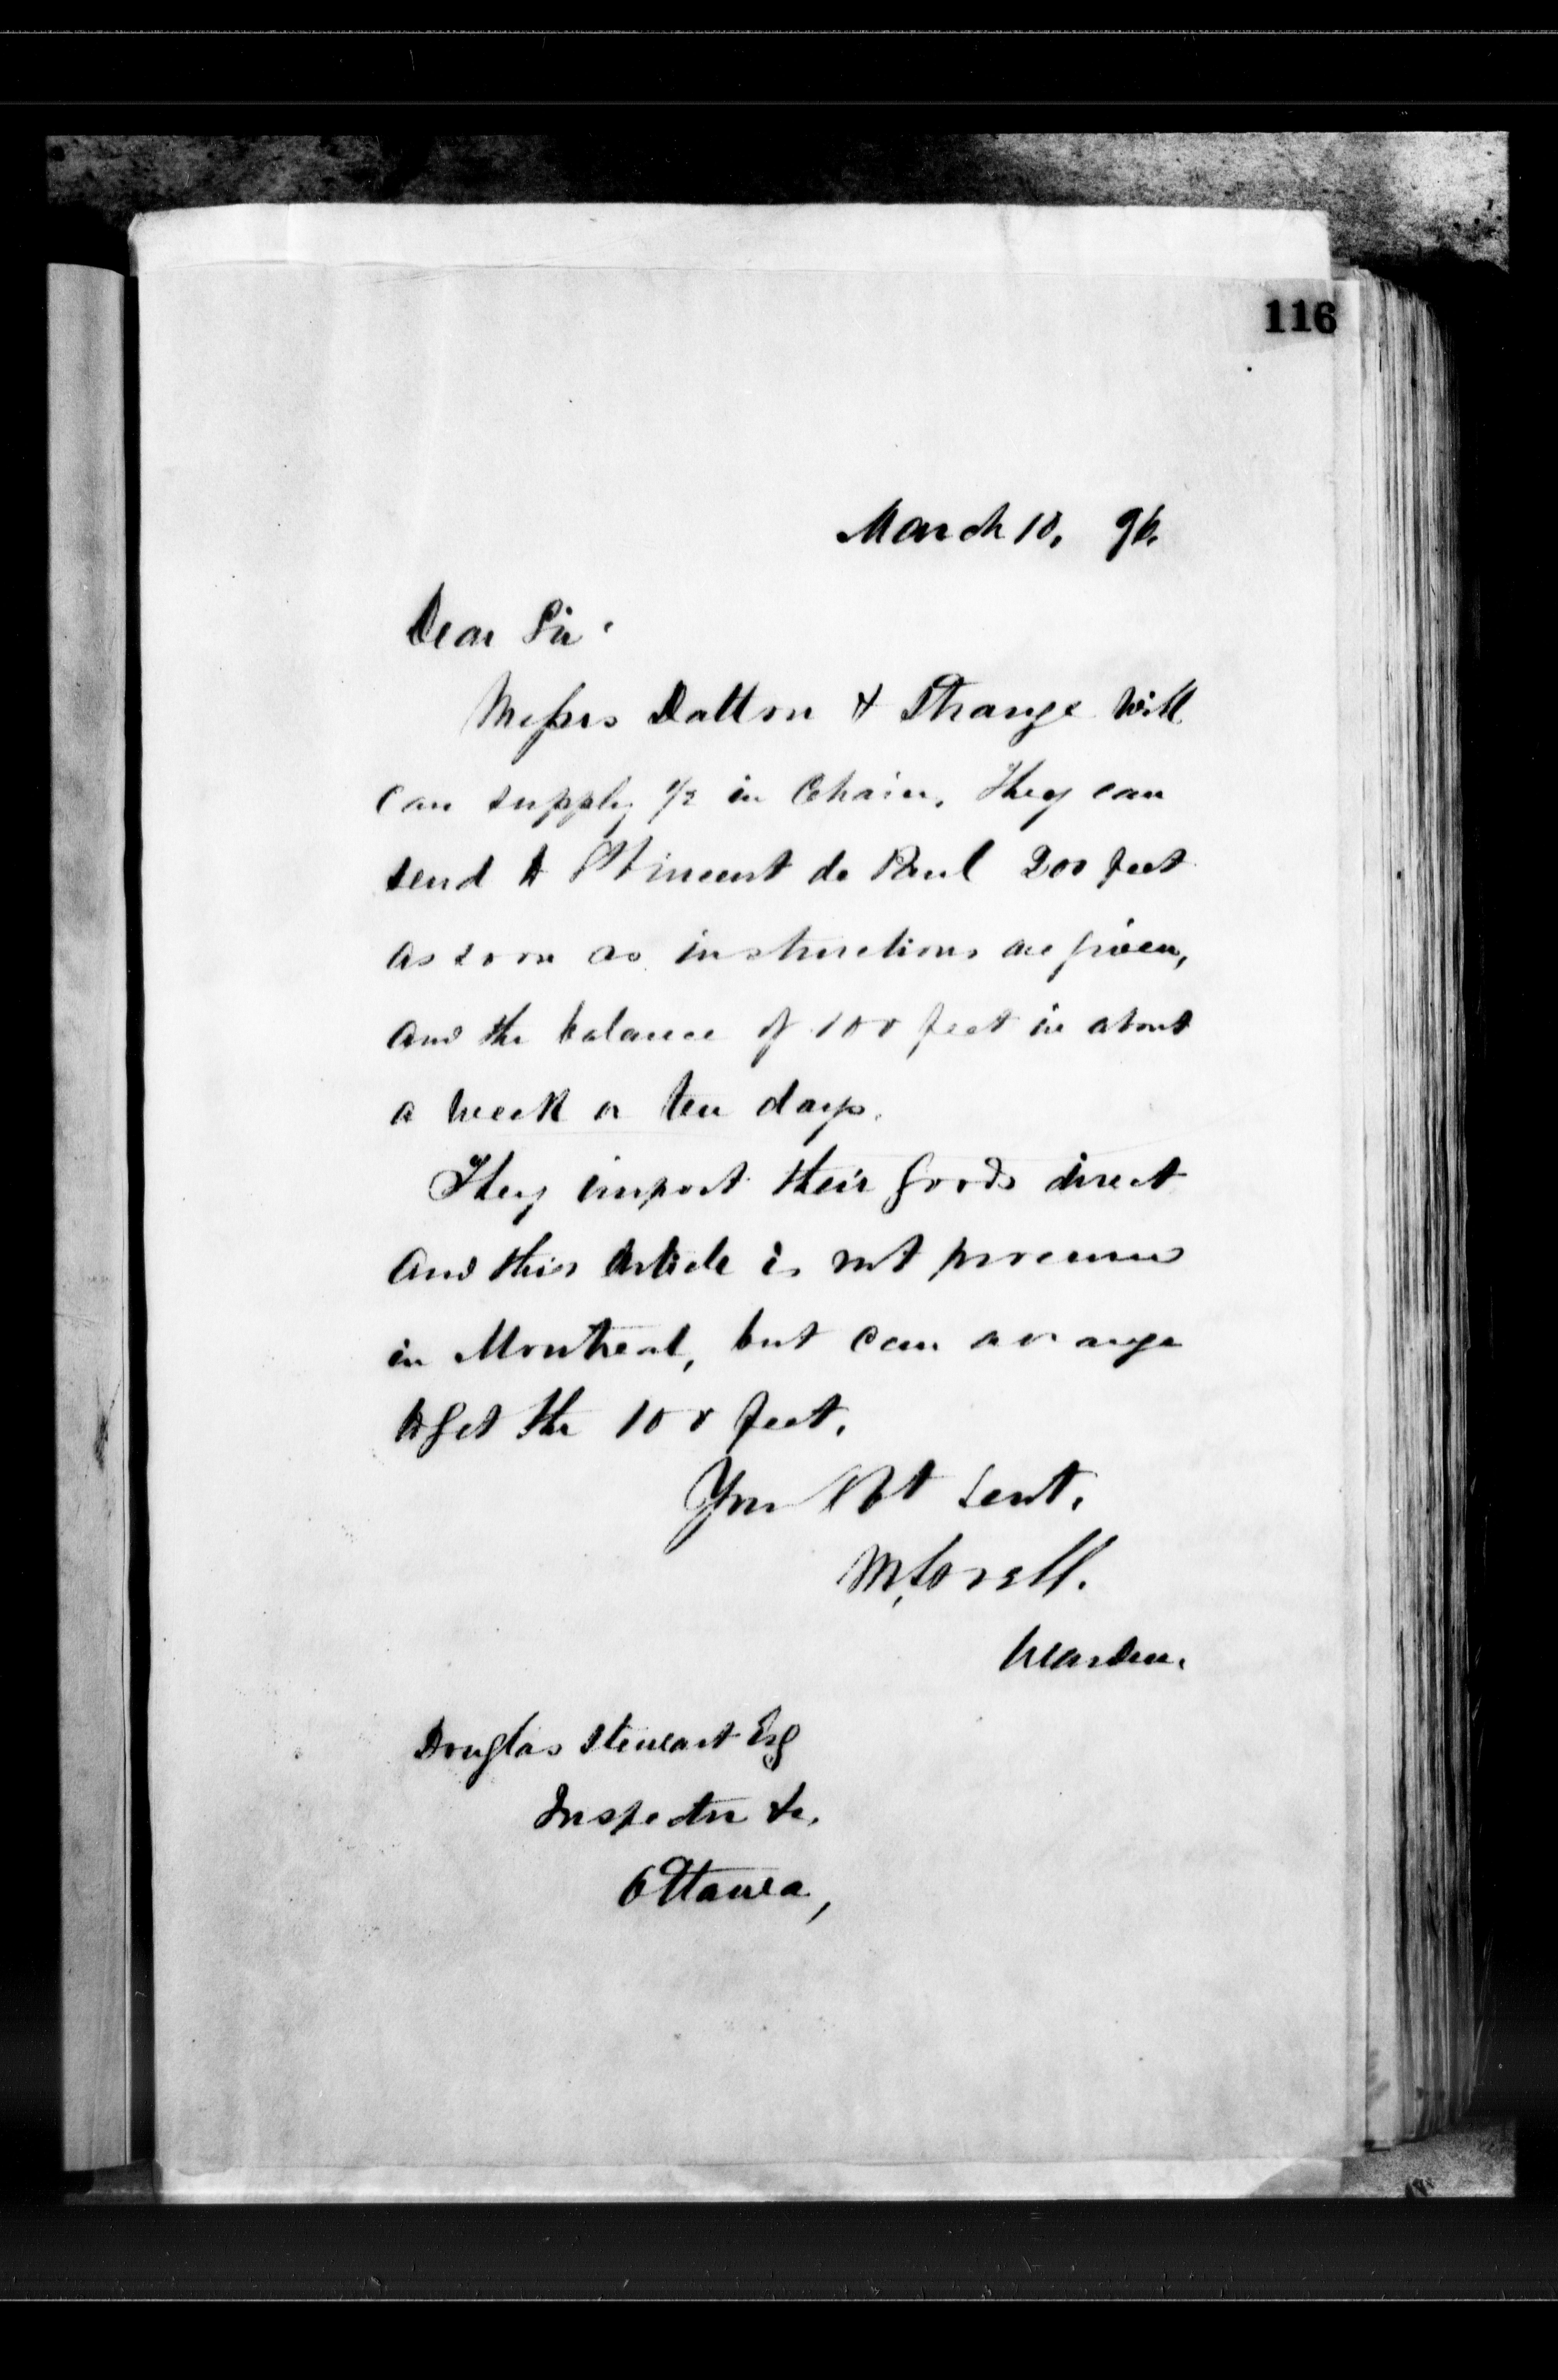 116
March 10, 96.
Dear Sir
Messrs Dalton & Strange Will
can supply 1/2 in Chain. They can
send to St Vincent de Paul 200 feet
as soon as instructions are given,
and the balance of 100 feet in about
a week or ten days.
They import their goods direct
and this Article is not procured
in Montreal, but can arrange
to get the 100 feet.
Your Obt Servt.
M. Lavell.
Warden.
Douglas Stewart Esq
Inspector &c.
Ottawa,